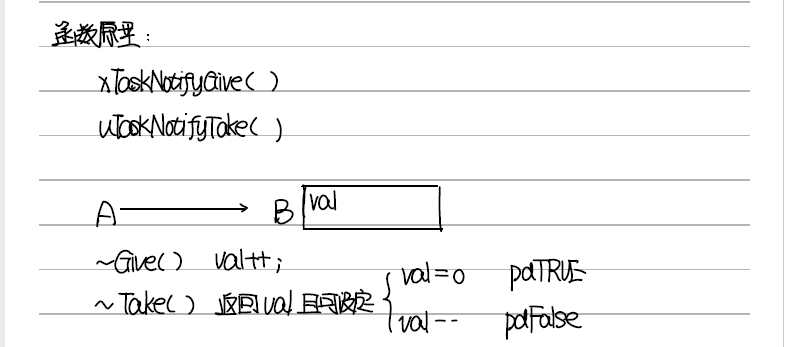 函数原型：
xTaskNotifyGive( )
uTaskNotifyTake( )
A B val
~Give() val++;
~Take() 返回val且可设定 val=0 pdTRUE
val-- pdFalse